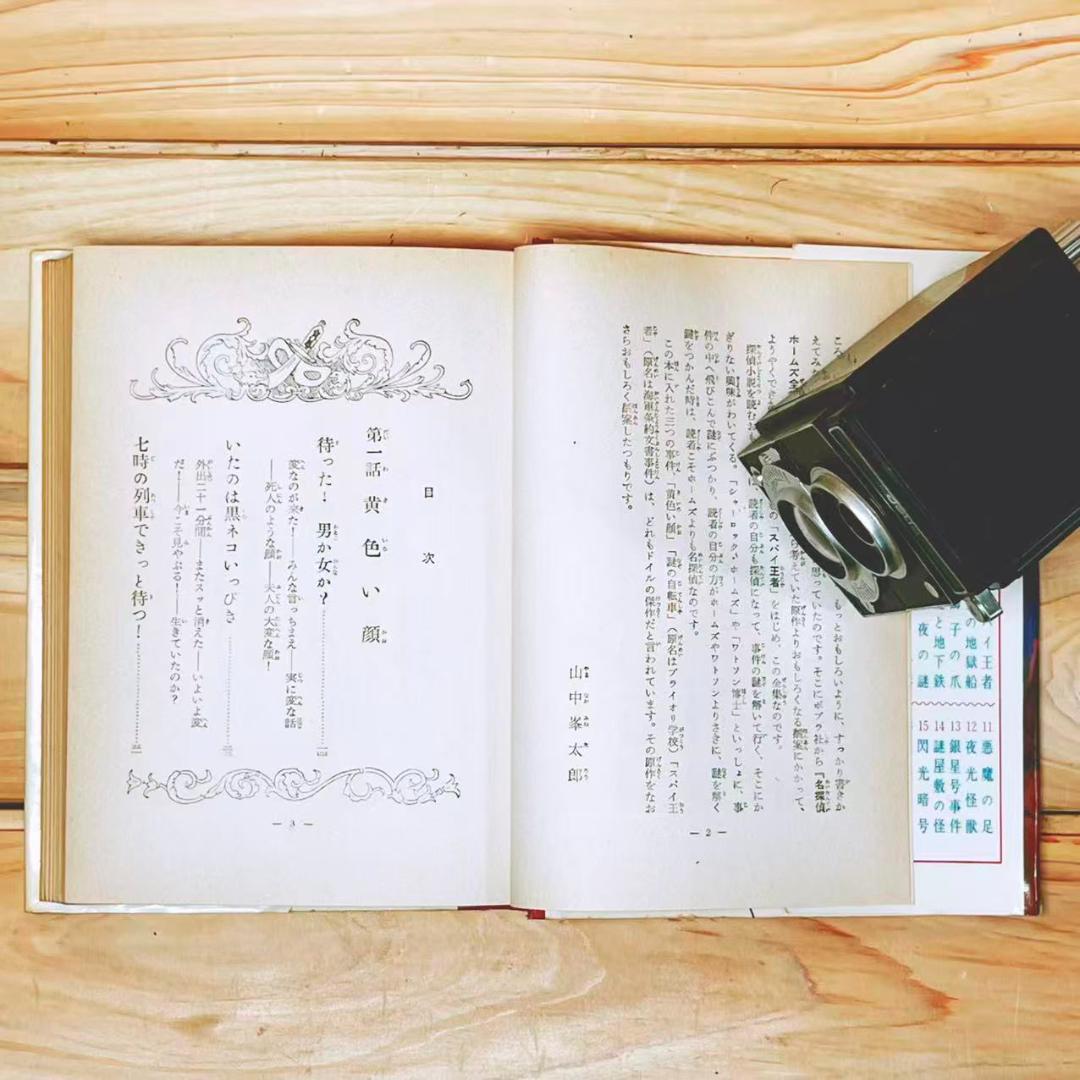 ころ
もっとおもしろいように、すっかり書きか
えてみた
思っていたのです。そこにポプラ社から『名探偵
ホームズ全
ら考えていた原作よりおもしろくなる飜案にかかって、
ようやくでき
の「スパイ王者」をはじめ、この全集なのです。
探偵小説を読むお
は、読者の自分も探偵になって、事件の謎を解いて行く、そこにか
ぎりない興味がわいてくる。「シャーロック・ホームズ」や「ワトソン博士」といっしょに、事
件の中へ飛びこんで謎にぶつかり、読者の自分の方がホームズやワトソンよりさきに、謎を解く
鍵をつかんだ時は、読者こそホームズよりも名探偵なのです。
この本に入れた三つの事件「黄色い顔」「謎の自転車」（原名はプライオリ学校）「スパイ王
者」（原名は海軍条約文書事件）は、どれもドイルの傑作だと言われています。その原作をなお
さらおもしろく飜案したつもりです。
山中峯太郎
— 2 —
目次
第一話 黄色い顔
待った！ 男か女か？
変なのが来た！——みんな言っちまえ——実に変な話
——死人のような顔——夫人の大変な顔！
いたのは黒ネコいっぴき
外出二十一分間——またスッと消えた——いよいよ変
だ！——今こそ見やぶる！——生きていたのか？
七時の列車できっと待つ！
— 3 —
イ王者
の地獄船
子の爪
と地下鉄
夜の謎
11 悪魔の足
12 夜光怪獣
13 銀星号事件
14 謎屋敷の怪
15 閃光暗号